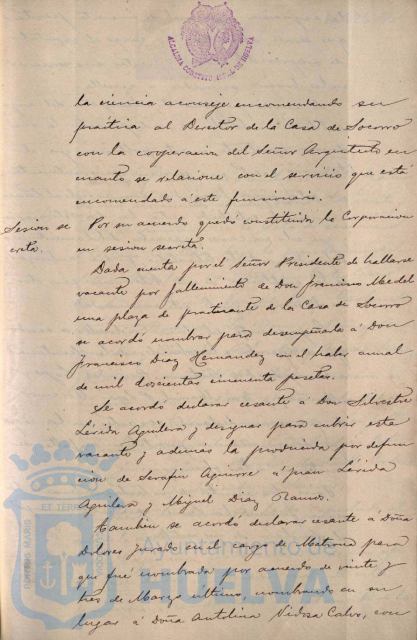 ALCALDIA CONSTITUCIONAL DE HUELVA
la ciencia aconseje encomendando su
práctica al Director de la Casa de Socorro
con la cooperacion del Señor Arquitecto en
cuanto se relacione con el servicio que está
encomendado á este funcionario.
Sesion se
creta.
Por su acuerdo quedó constituida la Corporacion
en sesion secreta.
Dada cuenta por el Señor Presidente de hallarse
vacante por fallecimiento de Don Francisco Medel
una plaza de practicante de la Casa de Socorro
se acordó nombrar para desempeñarla á Don
Francisco Diaz Hernandez con el haber anual
de mil doscientas cincuenta pesetas.
Se acordó declarar cesante á Don Silvestre
Lérida Aguilera y designar para cubrir esta
vacante y además la producida por defun
cion de Serafin Aguirre á Juan Lérida
Aguilera y Miguel Diaz Ramos.
Tambien se acordó declarar cesante á Doña
Dolores Jurado en el cargo de Matrona para
que fué nombrada por acuerdo de veinte y
tres de Marzo último, nombrando en su
lugar á Doña Antolina Vidosa Calvo, con
PORTUS MARIS ET TERRAE
Ayuntamiento de
HUELVA